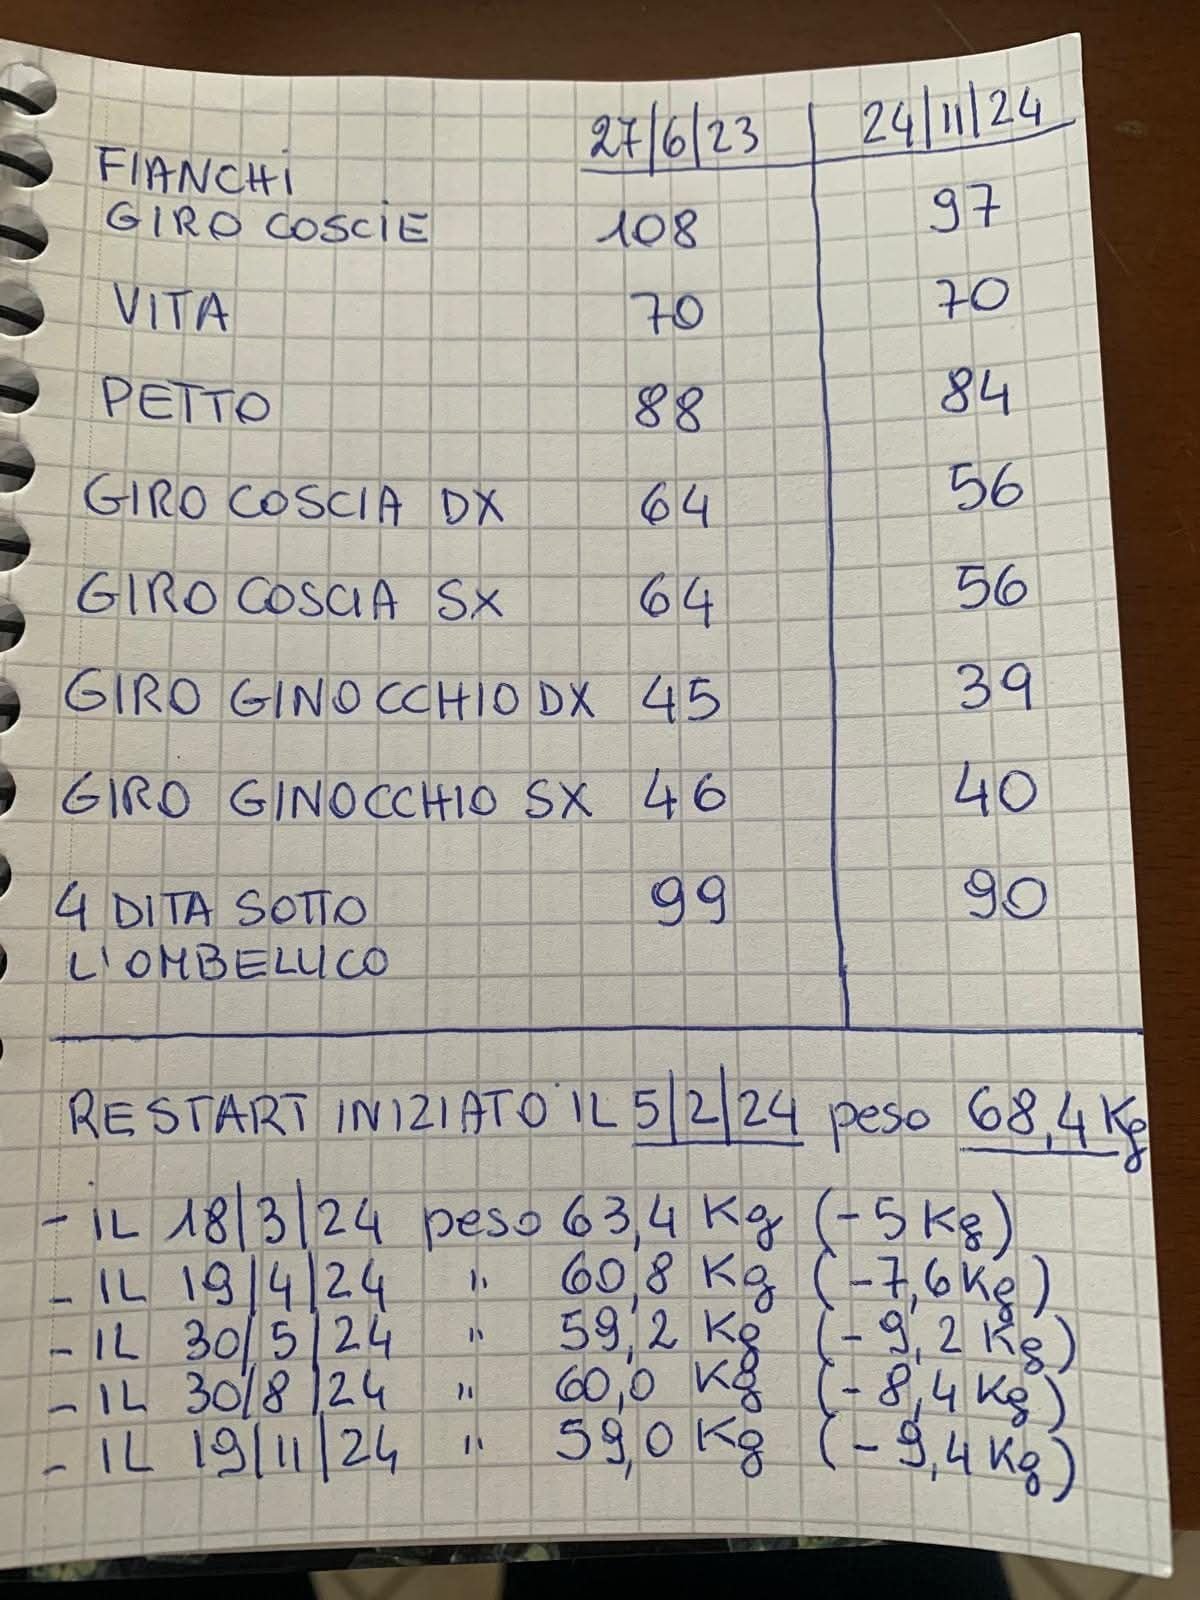 27/6/23 24/11/24
FIANCHI
GIRO COSCIE 108 97
VITA 70 70
PETTO 88 84
GIRO COSCIA DX 64 56
GIRO COSCIA SX 64 56
GIRO GINOCCHIO DX 45 39
GIRO GINOCCHIO SX 46 40
4 DITA SOTTO 99 90
L'OMBELLICO
RESTART INIZIATO IL 5/2/24 peso 68,4 Kg
- IL 18/3/24 peso 63,4 Kg (-5 Kg)
- IL 19/4/24 " 60,8 Kg (-7,6 Kg)
- IL 30/5/24 " 59,2 Kg (-9,2 Kg)
- IL 30/8/24 " 60,0 Kg (-8,4 Kg)
- IL 19/11/24 " 59,0 Kg (-9,4 Kg)